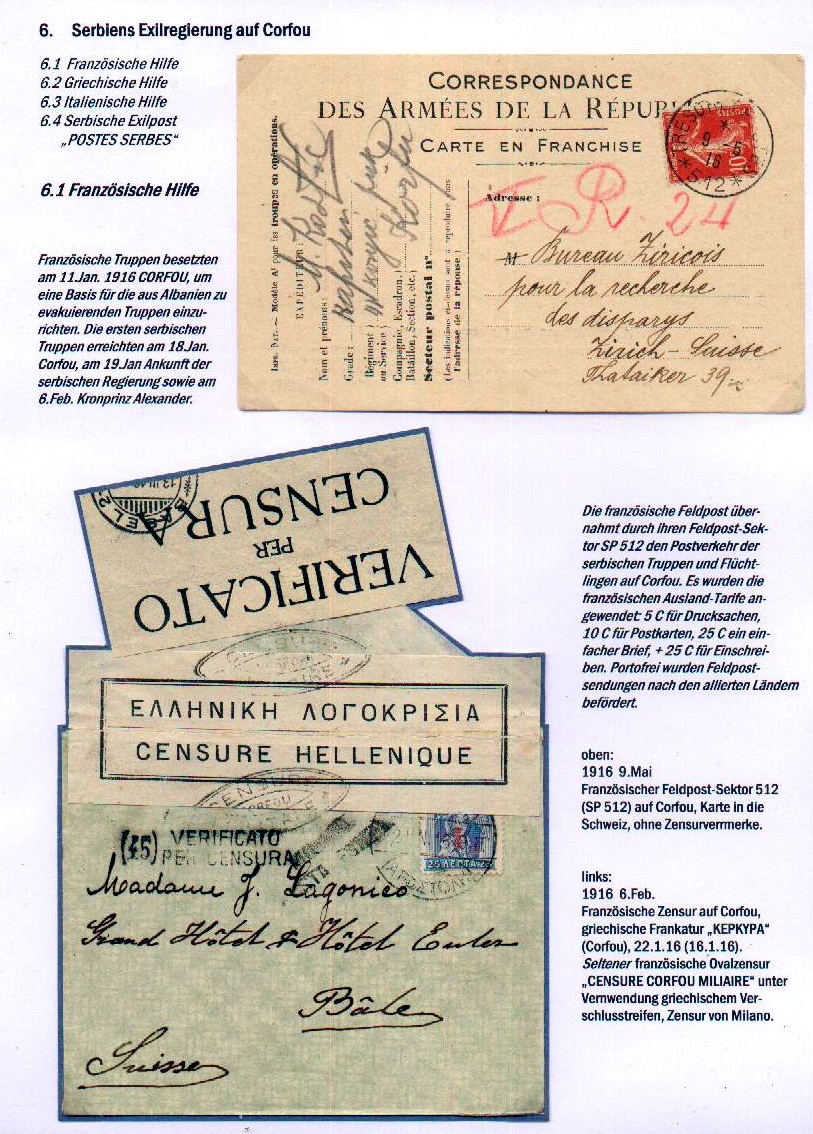 6. Serbiens Exilregierung auf Corfou
6.1 Französische Hilfe
6.2 Griechische Hilfe
6.3 Italienische Hilfe
6.4 Serbische Exilpost
„POSTES SERBES“
6.1 Französische Hilfe
Französische Truppen besetzten
am 11.Jan. 1916 CORFOU, um
eine Basis für die aus Albanien zu
evakuierenden Truppen einzu-
richten. Die ersten serbischen
Truppen erreichten am 18.Jan.
Corfou, am 19.Jan Ankunft der
serbischen Regierung sowie am
6.Feb. Kronprinz Alexander.
CORRESPONDANCE
DES ARMÉES DE LA RÉPU
CARTE EN FRANCHISE
9 -5
16
*512*
10
IMP. NAT. — Modèle A¹ pour les troupes en opérations.
EXPÉDITEUR:
Nom et prénoms:
Grade:
Régiment
ou Service
Compagnie, Escadron,
Bataillon, Section, etc.
Secteur postal n°
(Les indications ci-dessus sont à reproduire dans
l'adresse de la réponse.)
Korfu
R. 24
Adresse :
M Bureau Ziricois
pour la recherche
des disparys
Zirich - Suisse
Thataiker 39
VERIFICATO
PER
CENSURA
13.III.16
BASEL 2
ΕΛΛΗΝΙΚΗ ΛΟΓΟΚΡΙΣΙΑ
CENSURE HELLENIQUE
CENSURE
CORFOU
(45) VERIFICATO
PER CENSURA
25 ΛΕΠΤΑ 25
Madame J. Lagonico
Grand Hôtel & Hôtel Euler
Bâle
Suisse
Die französische Feldpost über-
nahmt durch ihren Feldpost-Sek-
tor SP 512 den Postverkehr der
serbischen Truppen und Flücht-
lingen auf Corfou. Es wurden die
französischen Ausland-Tarife an-
gewendet: 5 C für Drucksachen,
10 C für Postkarten, 25 C ein ein-
facher Brief, + 25 C für Einschrei-
ben. Portofrei wurden Feldpost-
sendungen nach den allierten Ländern
befördert.
oben:
1916 9.Mai
Französischer Feldpost-Sektor 512
(SP 512) auf Corfou, Karte in die
Schweiz, ohne Zensurverrmerke.
links:
1916 6.Feb.
Französische Zensur auf Corfou,
griechische Frankatur „KEPKYPA“
(Corfou), 22.1.16 (16.1.16).
Seltener französische Ovalzensur
„CENSURE CORFOU MILIAIRE“ unter
Vernwendung griechischem Ver-
schlusstreifen, Zensur von Milano.